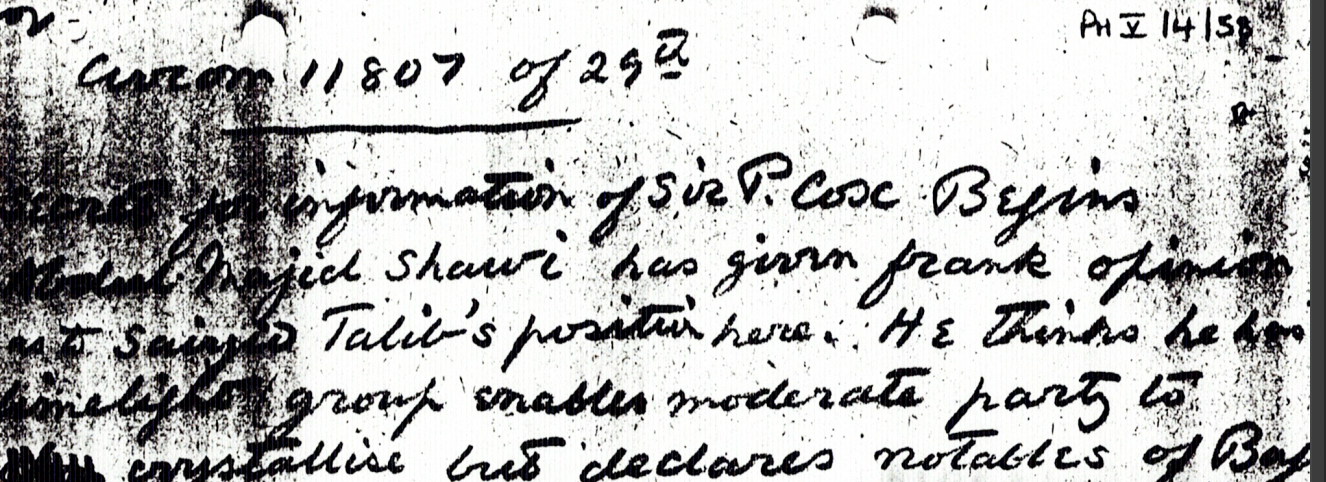 PH V /4/58
Civcom 11807 of 29th
Secret for information of Sir P. Cox Begins
Abdul Majid Shawi has given frank opinion
as to Saiyid Talib's position here. He thinks he has
limelight group enables moderate party to
crystallise but declares notables of Bag